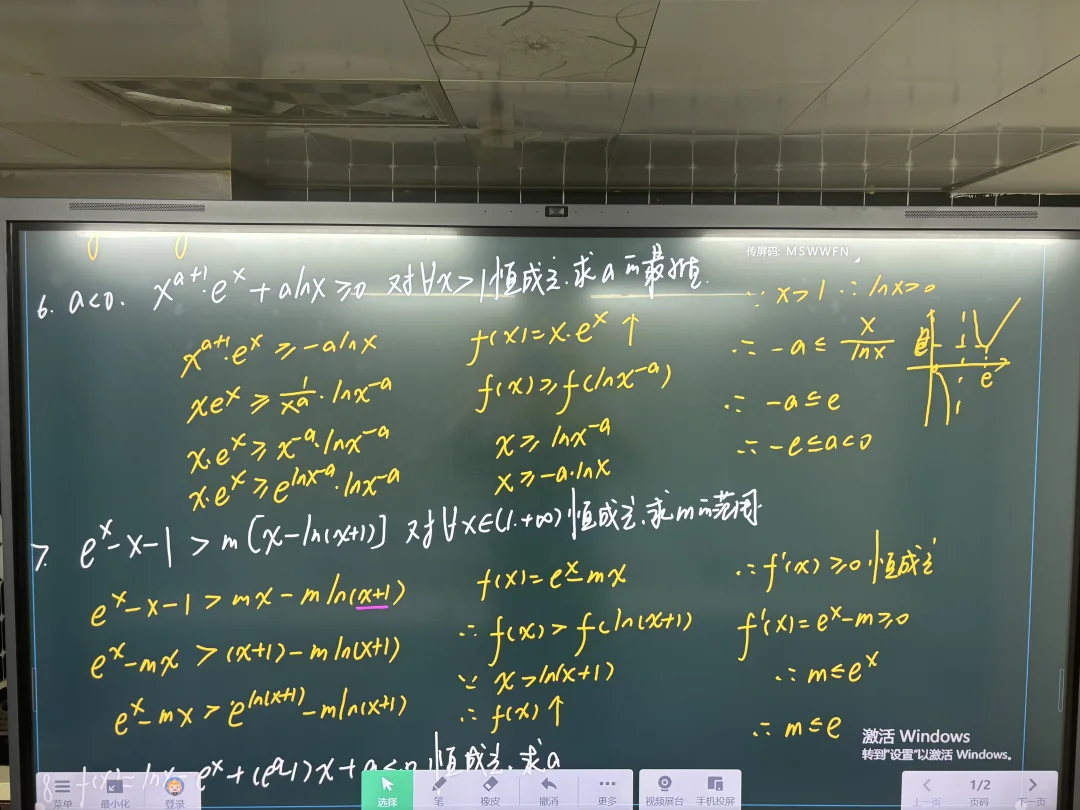 传屏码: MSWWFN
6. a<0. x^{a+1}·e^x + alnx ≥ 0 对∀x>1恒成立.求a的最小值.
x^{a+1}·e^x ≥ -alnx
xe^x ≥ \frac{1}{x^a}·lnx^{-a}
x·e^x ≥ x^{-a}·lnx^{-a}
x·e^x ≥ e^{lnx^{-a}}·lnx^{-a}
f(x)=x·e^x ↑
f(x) ≥ f(lnx^{-a})
x ≥ lnx^{-a}
x ≥ -a·lnx
∵ x>1 ∴ lnx>0
∴ -a ≤ \frac{x}{lnx}
∴ -a ≤ e
∴ -e ≤ a<0
e
1
7. e^x-x-1 > m[x-ln(x+1)] 对∀x∈(1,+∞)恒成立.求m的范围.
e^x-x-1 > mx-mln(x+1)
e^x-mx > (x+1)-mln(x+1)
e^x-mx > e^{ln(x+1)}-mln(x+1)
f(x)=e^x-mx
∴ f(x) > f(ln(x+1))
∵ x>ln(x+1)
∴ f(x)↑
∴ f'(x) ≥ 0 恒成立
f'(x)=e^x-m ≥ 0
∴ m ≤ e^x
∴ m ≤ e
激活 Windows
转到"设置"以激活 Windows。
恒成立.求a
菜单 最小化 登录 选择 笔 橡皮 撤消 更多 视频展台 手机投屏 上一页 1/2 页码 下一页